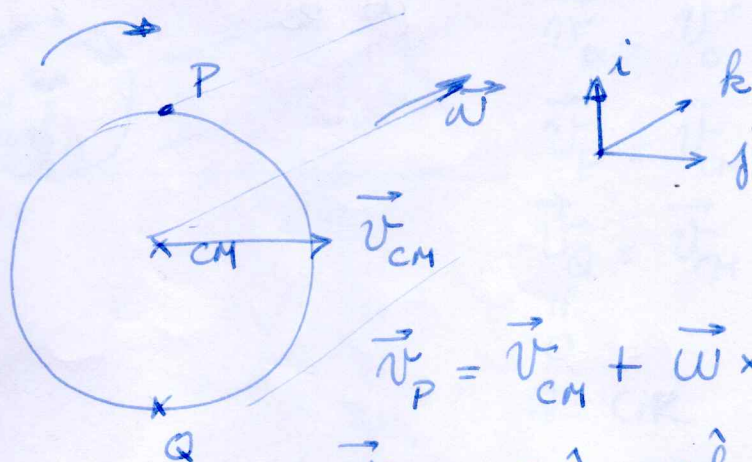 P
ω⃗
i
k
j
CM
v⃗_CM
v⃗_P = v⃗_CM + ω⃗ ×
Q